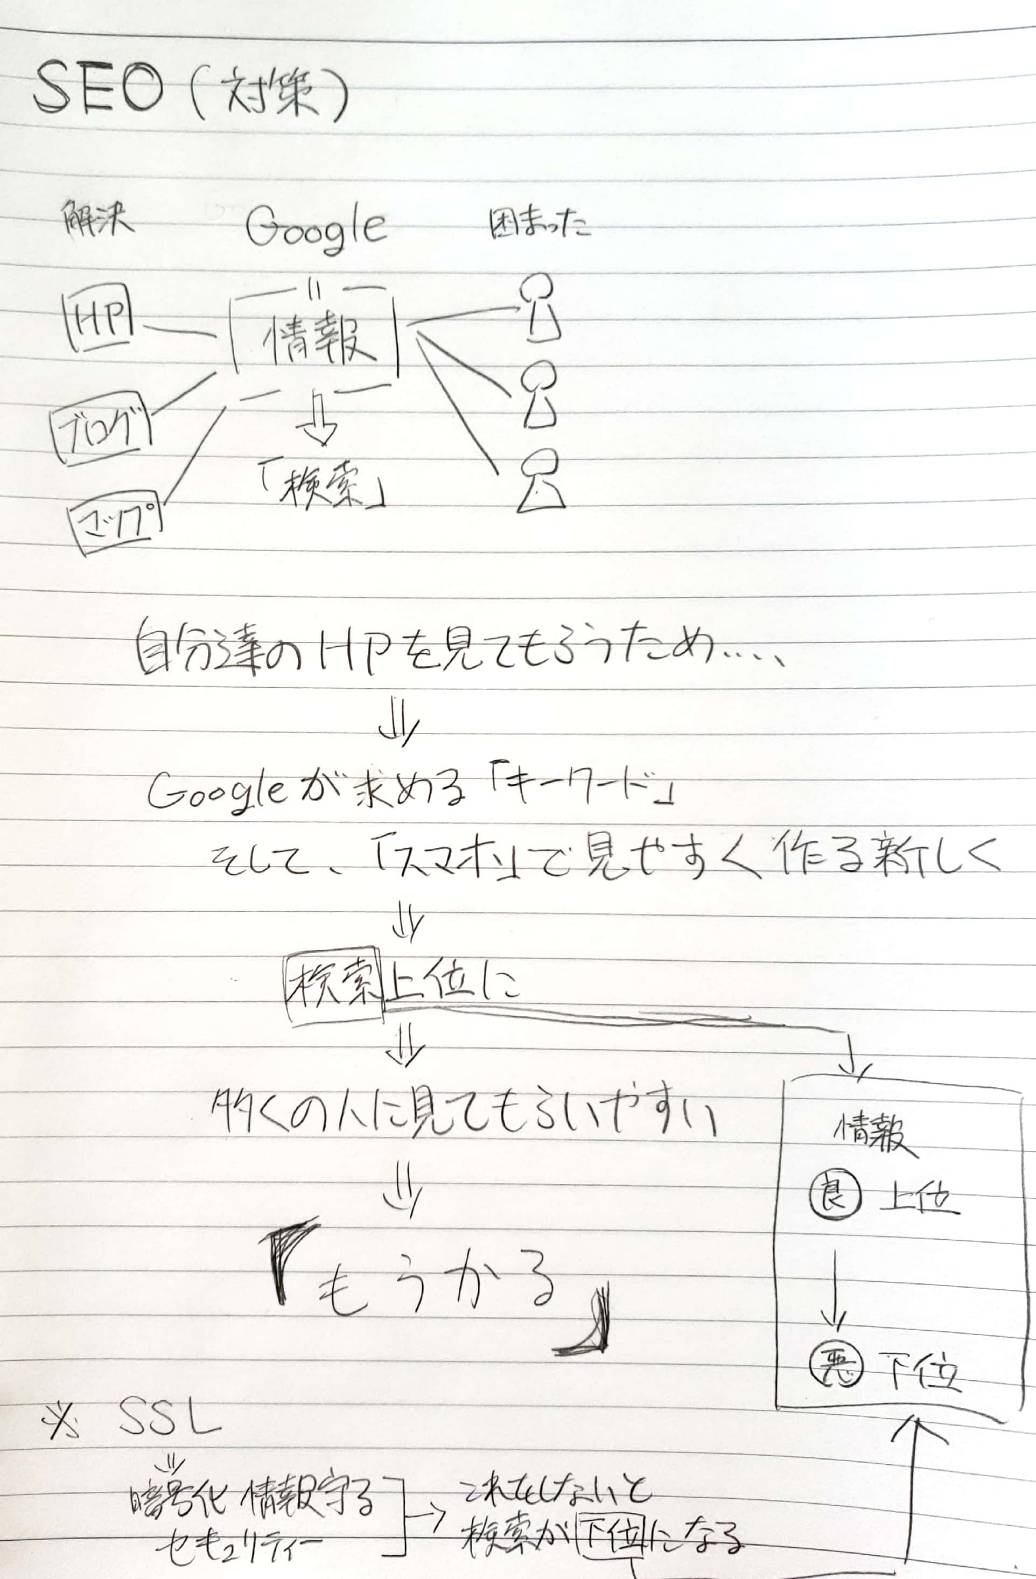 SEO（対策）
解決 Google 困まった
HP
情報
ブログ
「検索」
マップ
自分達のHPを見てもらうため....
Googleが求める「キーワード」
そして、「スマホ」で見やすく作る新しく
検索上位に
多くの人に見てもらいやすい
情報
良 上位
『もうかる』
悪 下位
※ SSL
暗号化 情報守る
セキュリティー
これをしないと
検索が下位になる